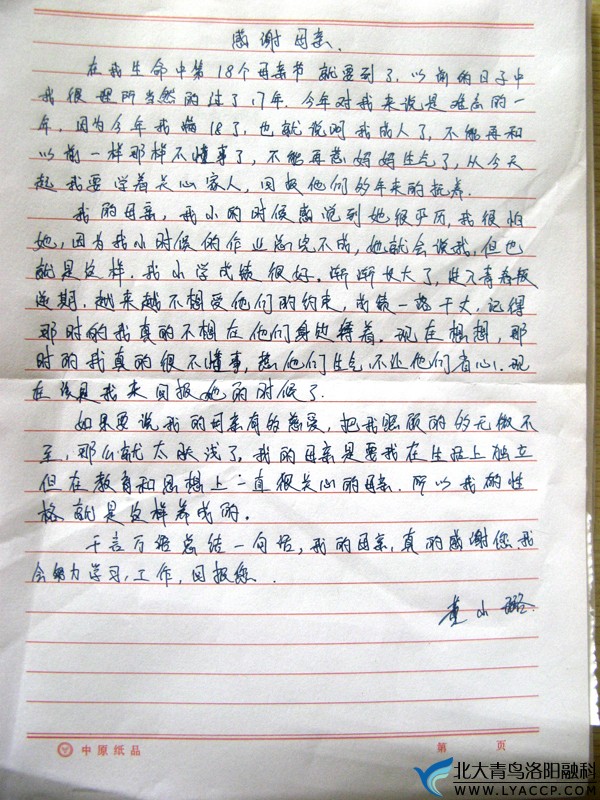 感谢母亲.
在我生命中第18个母亲节就要到了,以前的日子中
我很理所当然的过了17年.今年对我来说是难忘的一
年,因为今年我满18了,也就说明我成人了,不能再和
以前一样那样不懂事了,不能再惹妈妈生气了,从今天
起我要学着关心家人,回报他们的年来的抚养.
我的母亲,我小的时候感觉到她很严厉,我很怕
她,因为我小时候的作业总完不成,她就会说我,但也
就是这样.我小学成绩很好.渐渐长大了,进入青春叛
逆期.越来越不想受他们的约束,成绩一落千丈,记得
那时的我真的不想在他们身边待着.现在想想,那
时的我真的很不懂事,惹他们生气,不让他们省心!现
在该是我来回报她的时候了.
如果要说我的母亲有的慈爱,把我照顾的的无微不
至,那么就太肤浅了,我的母亲是要我在生活上独立
但在教育和思想上一直很关心的母亲.所以我的性
格就是这样养成的.
千言万语总结一句话,我的母亲,真的感谢您.我
会努力学习,工作,回报您.
董小璐
中原纸品
第 页
北大青鸟洛阳融科
WWW.LYACCP.COM